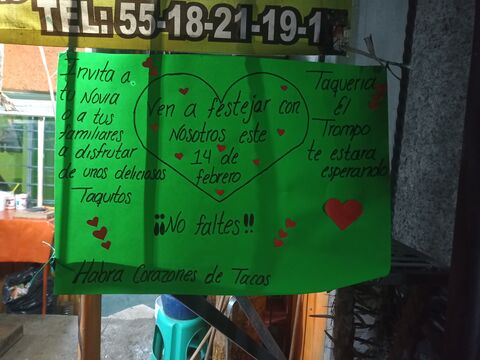 TEL: 55-18-21-19-1
Invita a
tu Novia
o a tus
familiares
a disfrutar
de unos deliciosos
Taquitos
Ven a festejar con
Nosotros este
14 de
febrero
¡¡No faltes!!
Taqueria
El
Trompo
te estara
esperando
Habra Corazones de Tacos